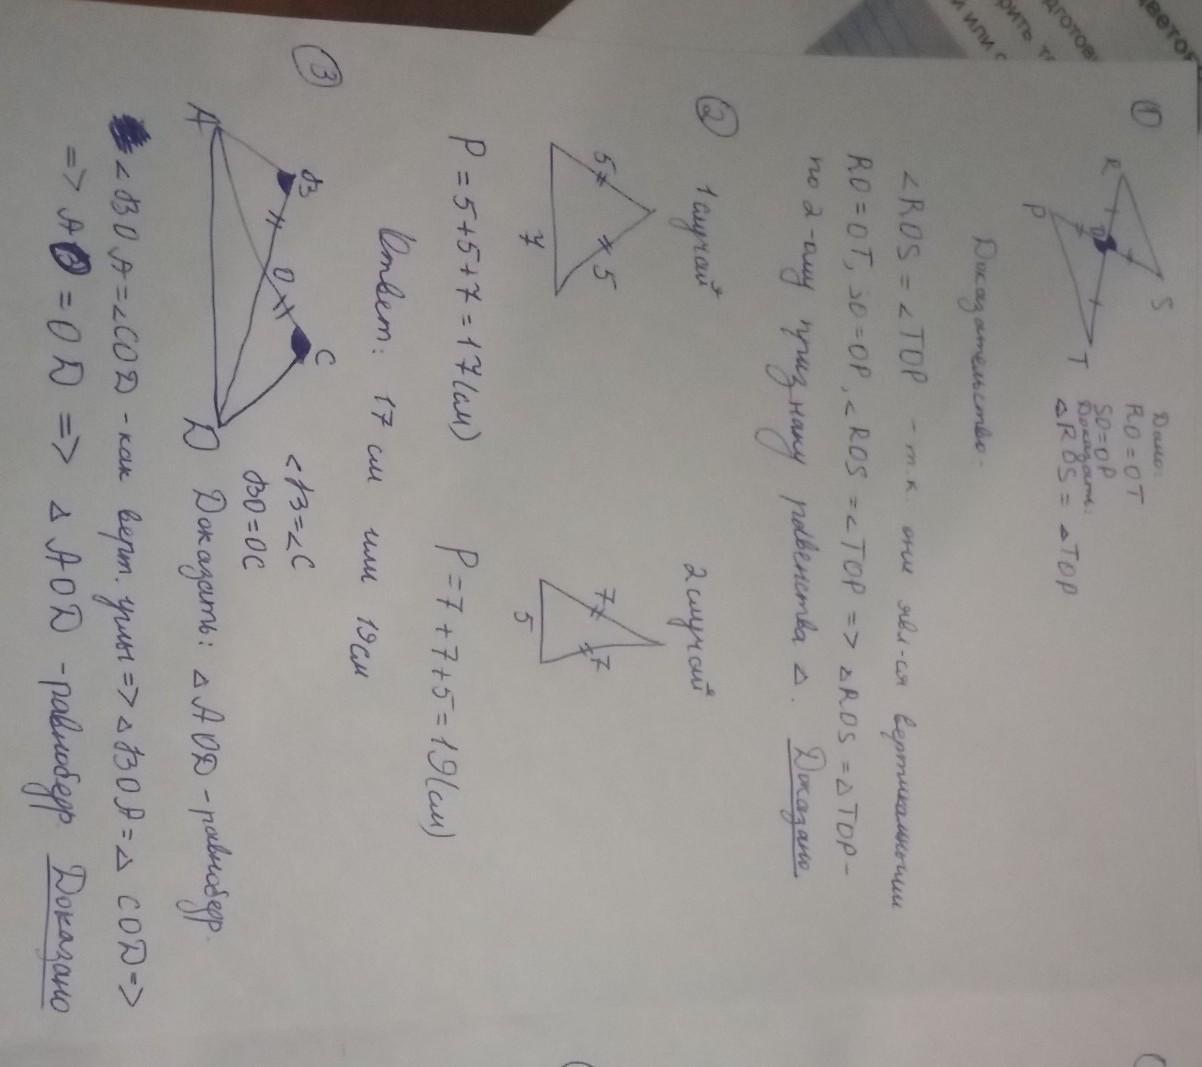 ①
R
S
O
P
T
Дано:
RO = OT
SO = OP
Доказать:
△ROS = △TOP
Доказательство:
∠ROS = ∠TOP - т.к они явл-ся вертикальными
RO = OT, SO = OP, ∠ROS = ∠TOP => △ROS = △TOP -
по 2-ому признаку равенства △. Доказано
② 1 случай 2 случай
5 5
7
7 7
5
P = 5 + 5 + 7 = 17 (см) P = 7 + 7 + 5 = 19 (см)
Ответ: 17 см или 19 см
③
B
C
O
A
D
∠B = ∠C
BO = OC
Доказать: △AOD - равнобедр.
∠BOA = ∠COD - как верт. углы => △BOA = △COD =>
=> AO = OD => △AOD - равнобедр. Доказано